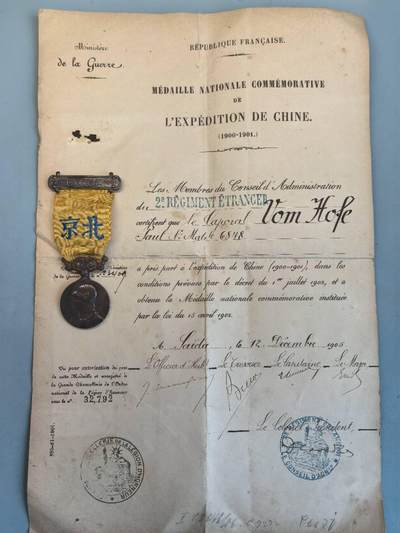 Ministère
de la Guerre.
RÉPUBLIQUE FRANÇAISE.
MÉDAILLE NATIONALE COMMÉMORATIVE
DE
L'EXPÉDITION DE CHINE.
(1900-1901.)
Les Membres du Conseil d'Administration
du 2e RÉGIMENT ÉTRANGER
certifient que le Caporal Vom Hofe
Paul Nº Mat. le 6848
a pris part à l'expédition de Chine (1900-1901), dans les
conditions prévues par le décret du 1er juillet 1902, et a
obtenu la Médaille nationale commémorative instituée
par la loi du 15 avril 1902.
京北
A Saïda, le 12 Décembre 1905
L'Officier d'Hab.t Le Trésorier Le Capitaine Le Major
Le Colonel Président,
Vu pour autorisation du port
de cette Médaille et enregistré à
la Grande Chancellerie de l'Ordre
national de la Légion d'honneur
sous le nº 32,792